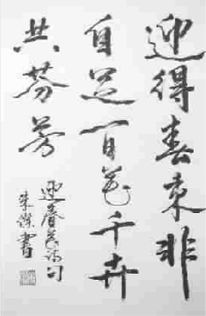 迎得春来非
自足百花千卉
共芬芳
迎春花诗句
朱杰書